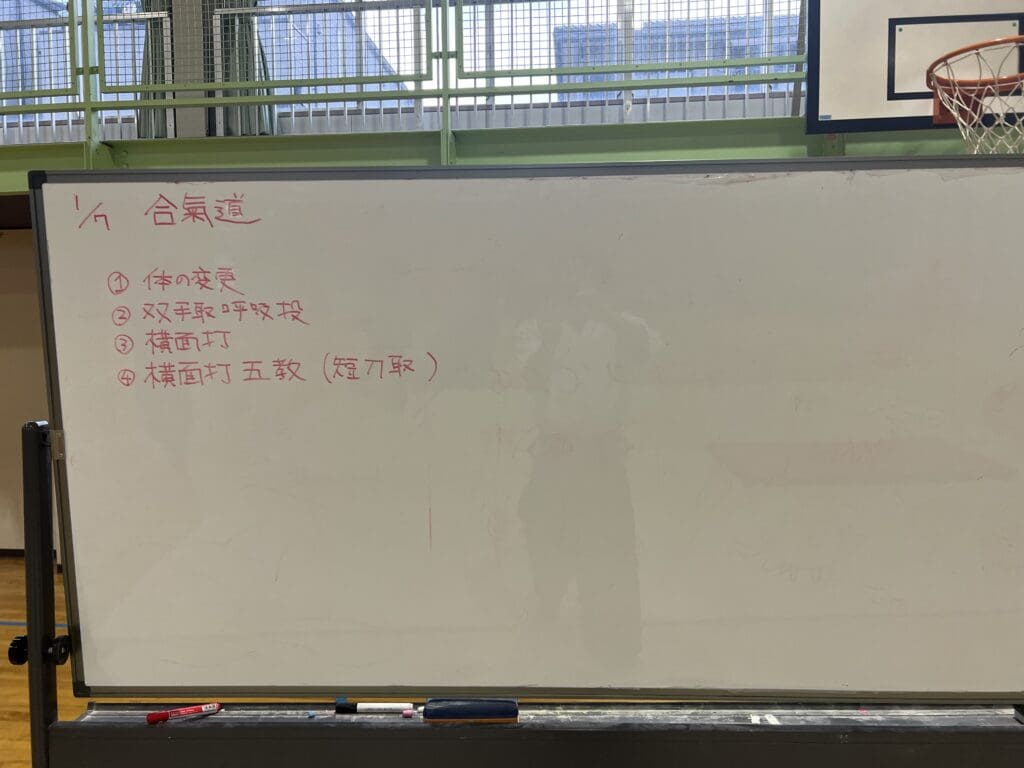 1/7 合氣道
① 体の変更
② 双手取呼吸投
③ 横面打
④ 横面打五教(短刀取)